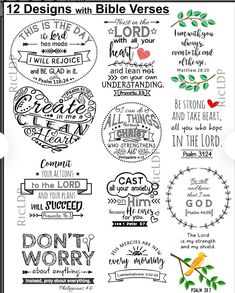 12 Designs with Bible Verses
THIS IS THE DAY
the Lord
has made
I WILL REJOICE
and BE GLAD in it.
Psalm 118:24
Trust in the
LORD
with all your
heart
and lean not
on your own
UNDERSTANDING.
I am with you
always,
even to the end
of the age.
Matthew 28:20
Create
in me a
CLEAN
Heart
I can do
ALL
THINGS
through
CHRIST
WHO STRENGTHENS
me
BE STRONG
AND TAKE HEART,
all you who hope
IN THE LORD.
Psalm 31:24
Commit
YOUR ACTIONS
to the LORD
AND YOUR PLANS
will SUCCEED
Proverbs 16:3
CAST
all your anxiety
on Him
Because
He cares
for you.
1 Peter 5:7
Be still
and know
that I am
GOD
Psalm 46:10
DON'T
WORRY
about anything;
Instead, pray about everything.
Philippians 4:6
HIS MERCIES ARE
NEW
every morning
Lamentations 3:22-23
The Lord is
my strength and
my shield.
PSALM 28:7
RicLDP
RicLDP
RicLDP